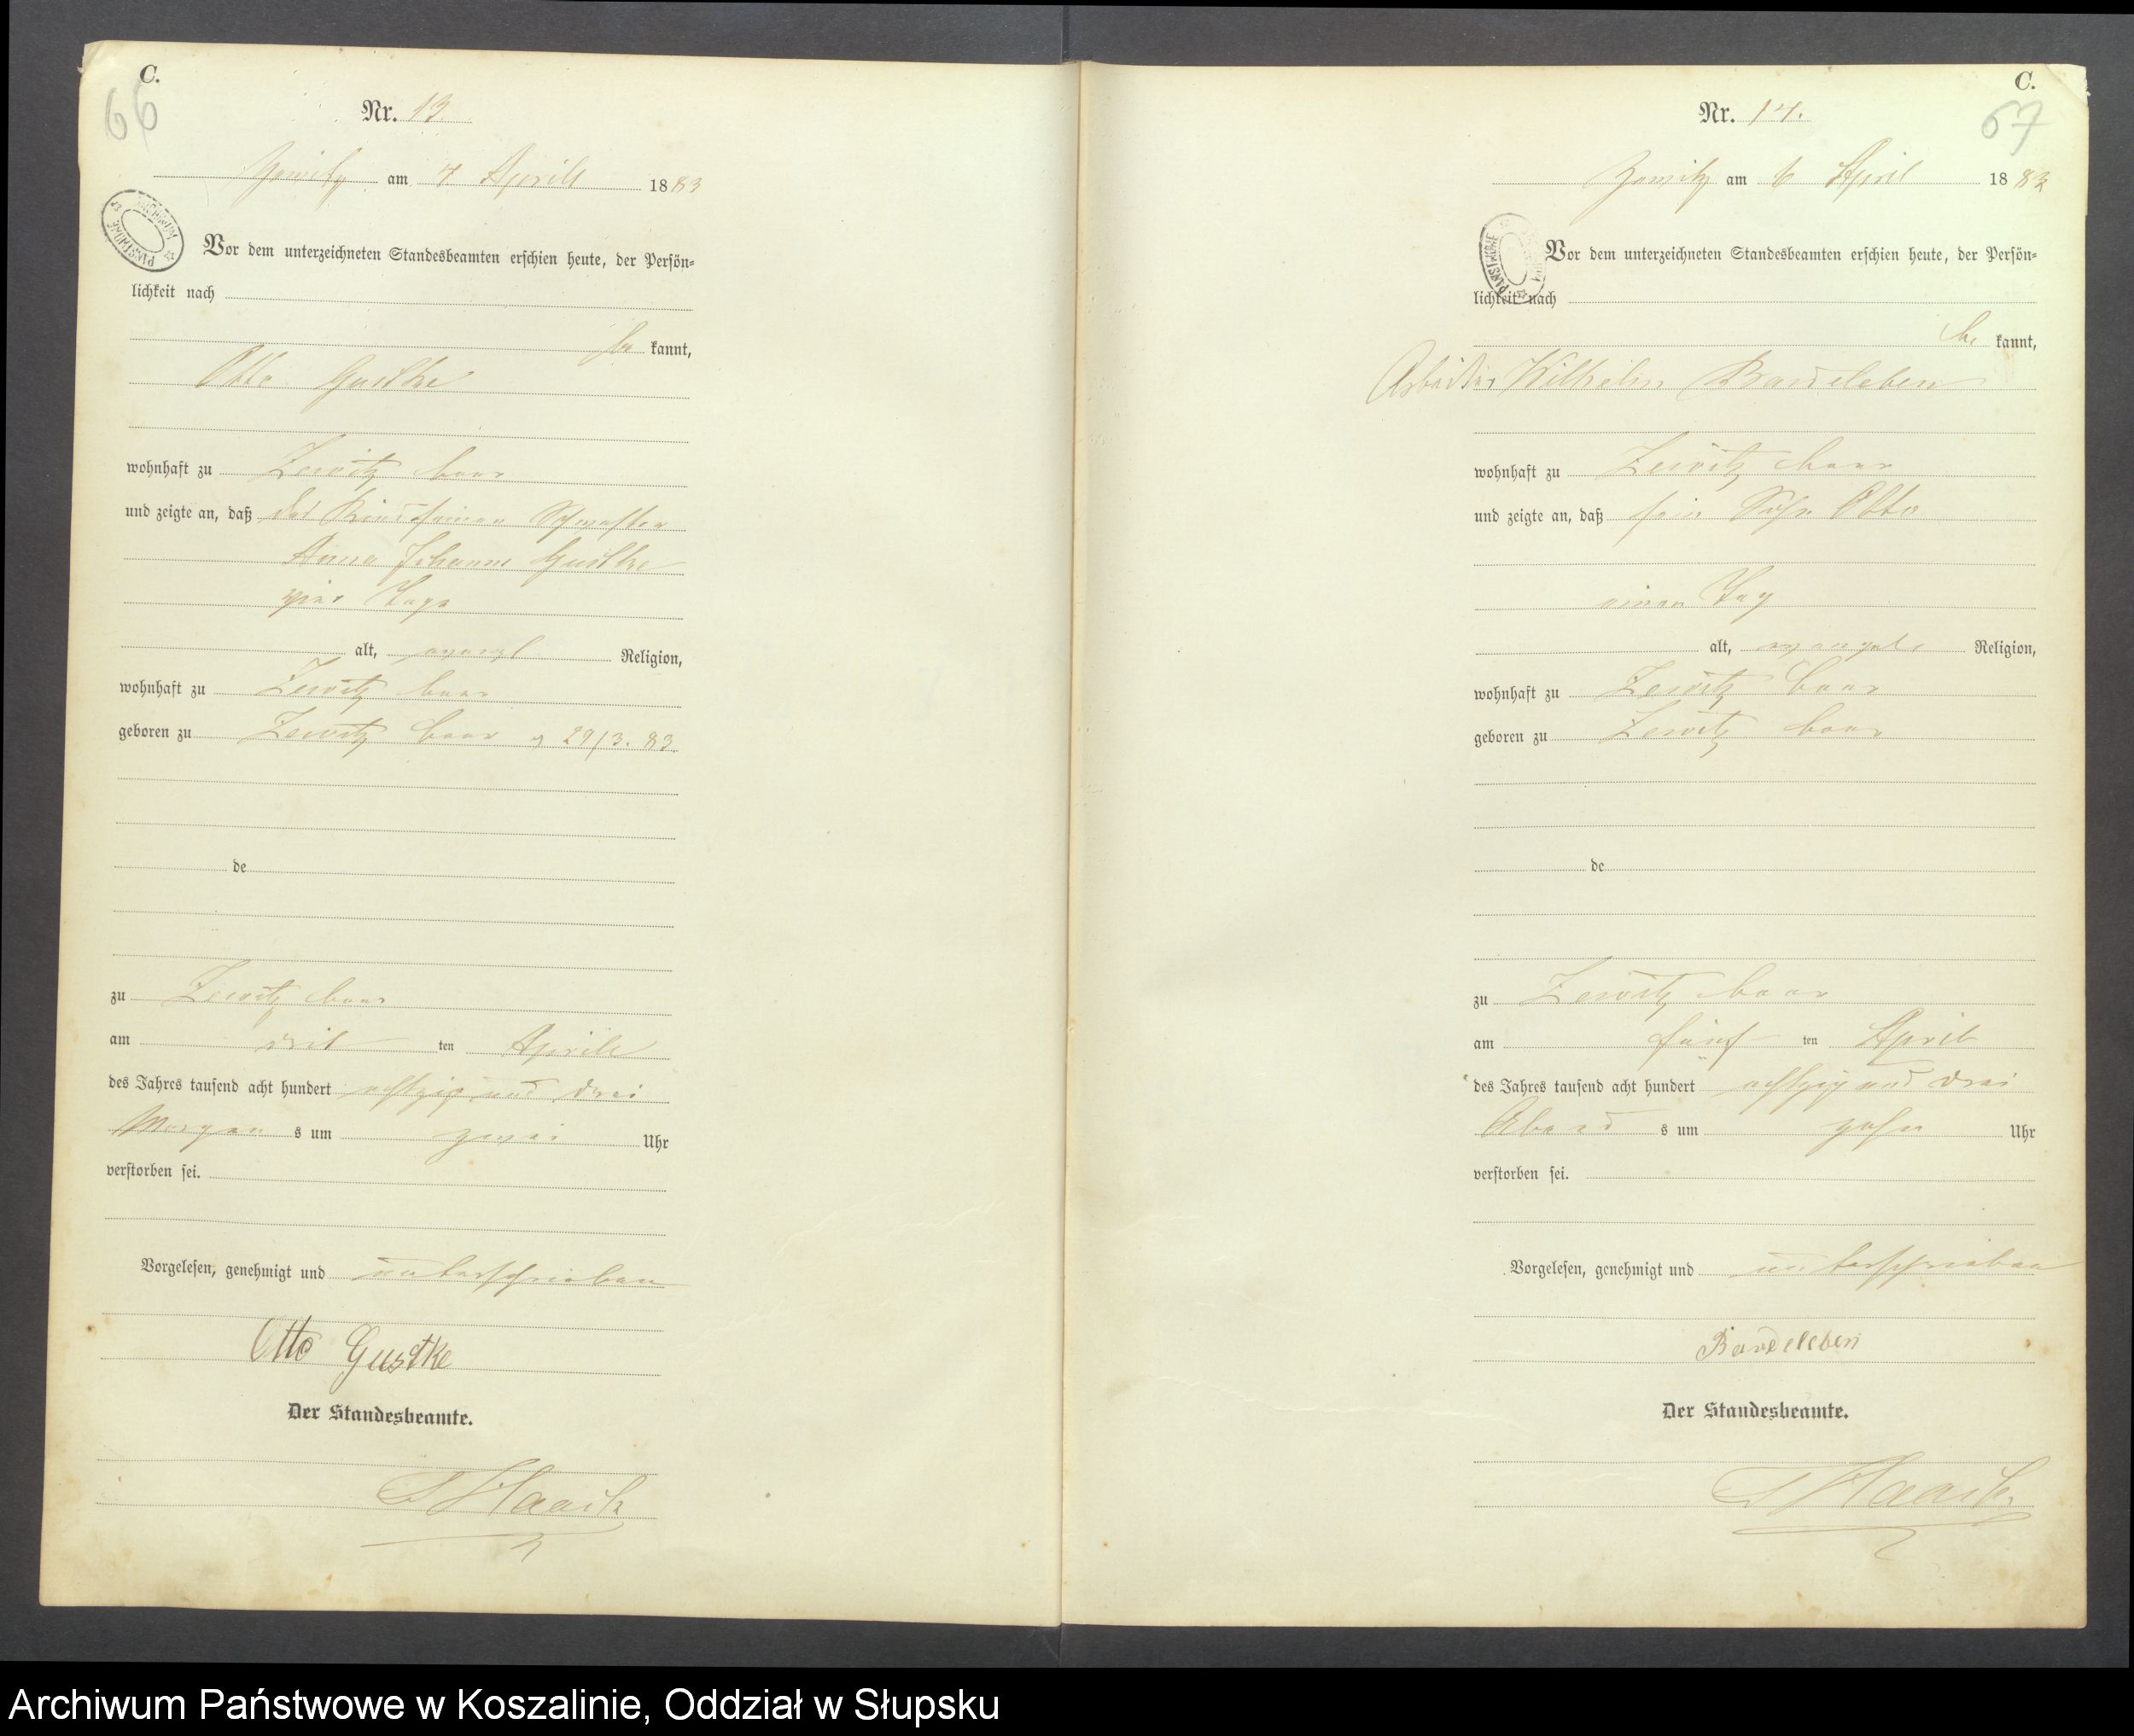 C.
66
Nr. 13.
Zewitz am 4 Aprill 1883
Vor dem unterzeichneten Standesbeamten erschien heute, der Persön-
lichkeit nach
be kannt,
Otto Gustke
wohnhaft zu Zewitz baar
und zeigte an, daß das Kind seiner Schwester
Anna Johanne Gustke
vier Tage
alt, evangl Religion,
wohnhaft zu Zewitz baar
geboren zu Zewitz baar 29/3. 83.
de
zu Zewitz baar
am drit ten Aprill
des Jahres tausend acht hundert achtzig und drei
Morgen s um zwei Uhr
verstorben sei.
Vorgelesen, genehmigt und unterschrieben
Otto Gustke
Der Standesbeamte.
Haack
C.
67
Nr. 14.
Zewitz am 6 April 1883
Vor dem unterzeichneten Standesbeamten erschien heute, der Persön-
lichkeit nach
be kannt,
Arbeiter Wilhelm Bardeleben
wohnhaft zu Zewitz baar
und zeigte an, daß sein Sohn Otto
einen Tag
alt, evangel. Religion,
wohnhaft zu Zewitz baar
geboren zu Zewitz baar
de
zu Zewitz baar
am fünf ten April
des Jahres tausend acht hundert achtzig und drei
Abend s um zehn Uhr
verstorben sei.
Vorgelesen, genehmigt und unterschrieben
Bardeleben
Der Standesbeamte.
Haack
Archiwum Państwowe w Koszalinie, Oddział w Słupsku